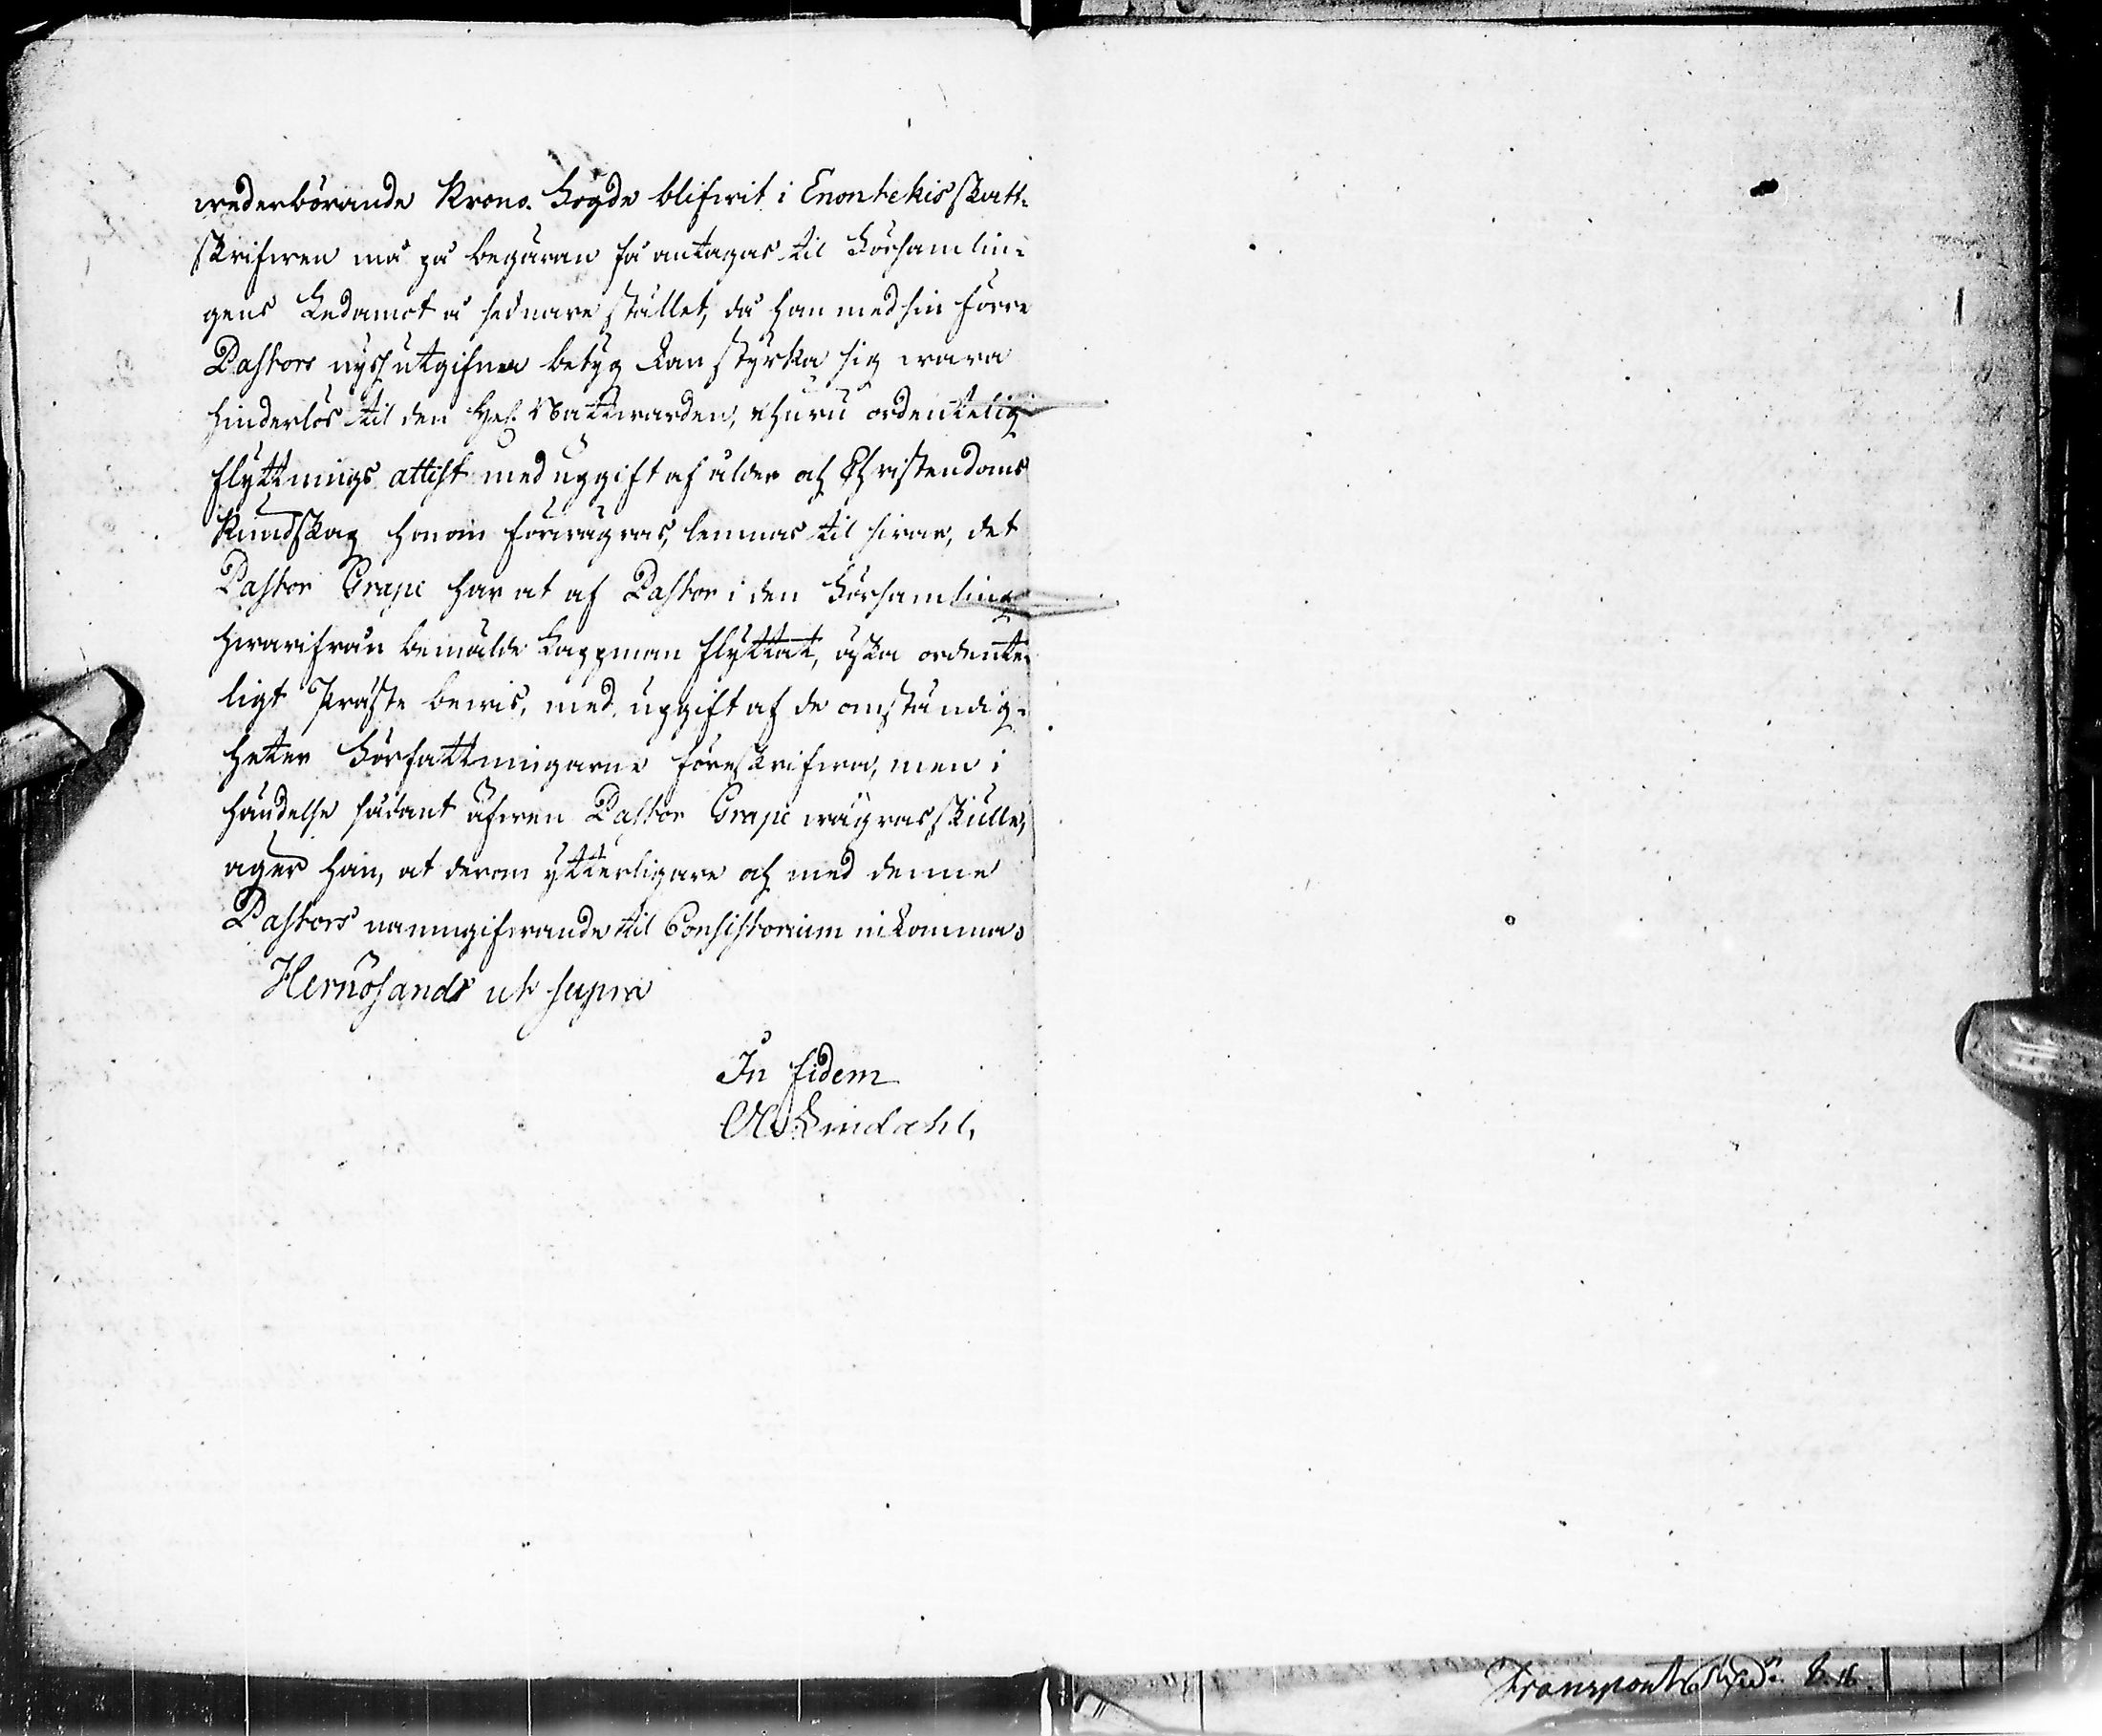 wederbörande Krono-Fogde blifwit i Enontekis skatt-
skrifwen må på begäran få antagas til Församlin-
gens Ledamot å sednare stället, då han med sin förre
Pastors nyss utgifna betyg kan styrka sig wara
hinderlös til den Hel. Nattwarden, ehuru ordentelig
flyttnings attest med upgift af ålder och Christendoms
Kundskap honom förwägras, lemnas til swar, det
Pastor Grape har at af Pastor i den Församling
hwarifrån bemälde Lappman flyttat, äska ordente-
ligt Präste bewis, med upgift af de omständig-
heter Författningarne föreskrifwa, men i
händelse sådant äfwen Pastor Grape wägras skulle,
äger han, at derom ytterligare och med denne
Pastors namngifwande til Consistorium inkomma.
Hernösand ut supra
In fidem
Lindahl,
Transport 8. 16.